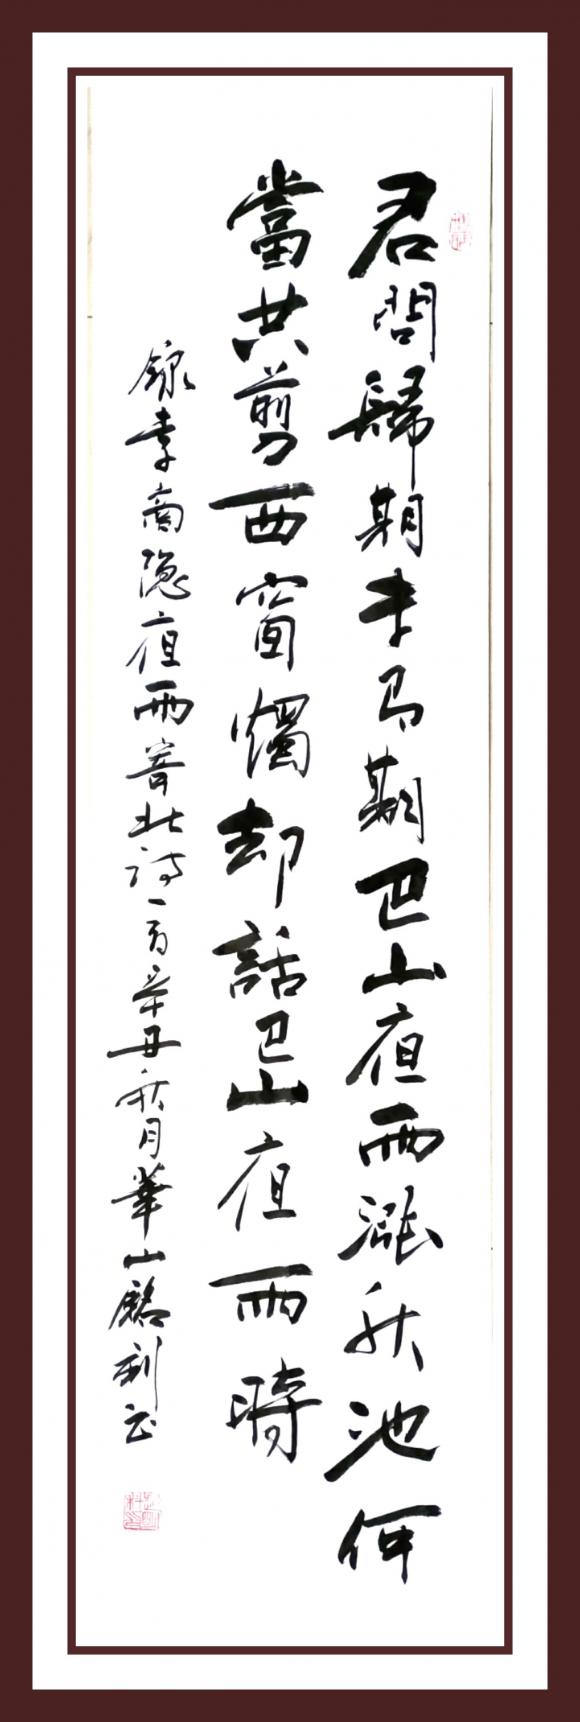 君問歸期未有期巴山夜雨漲秋池何
當共剪西窗燭却話巴山夜雨時
錄李商隐夜雨寄北詩一首辛丑秋月華山